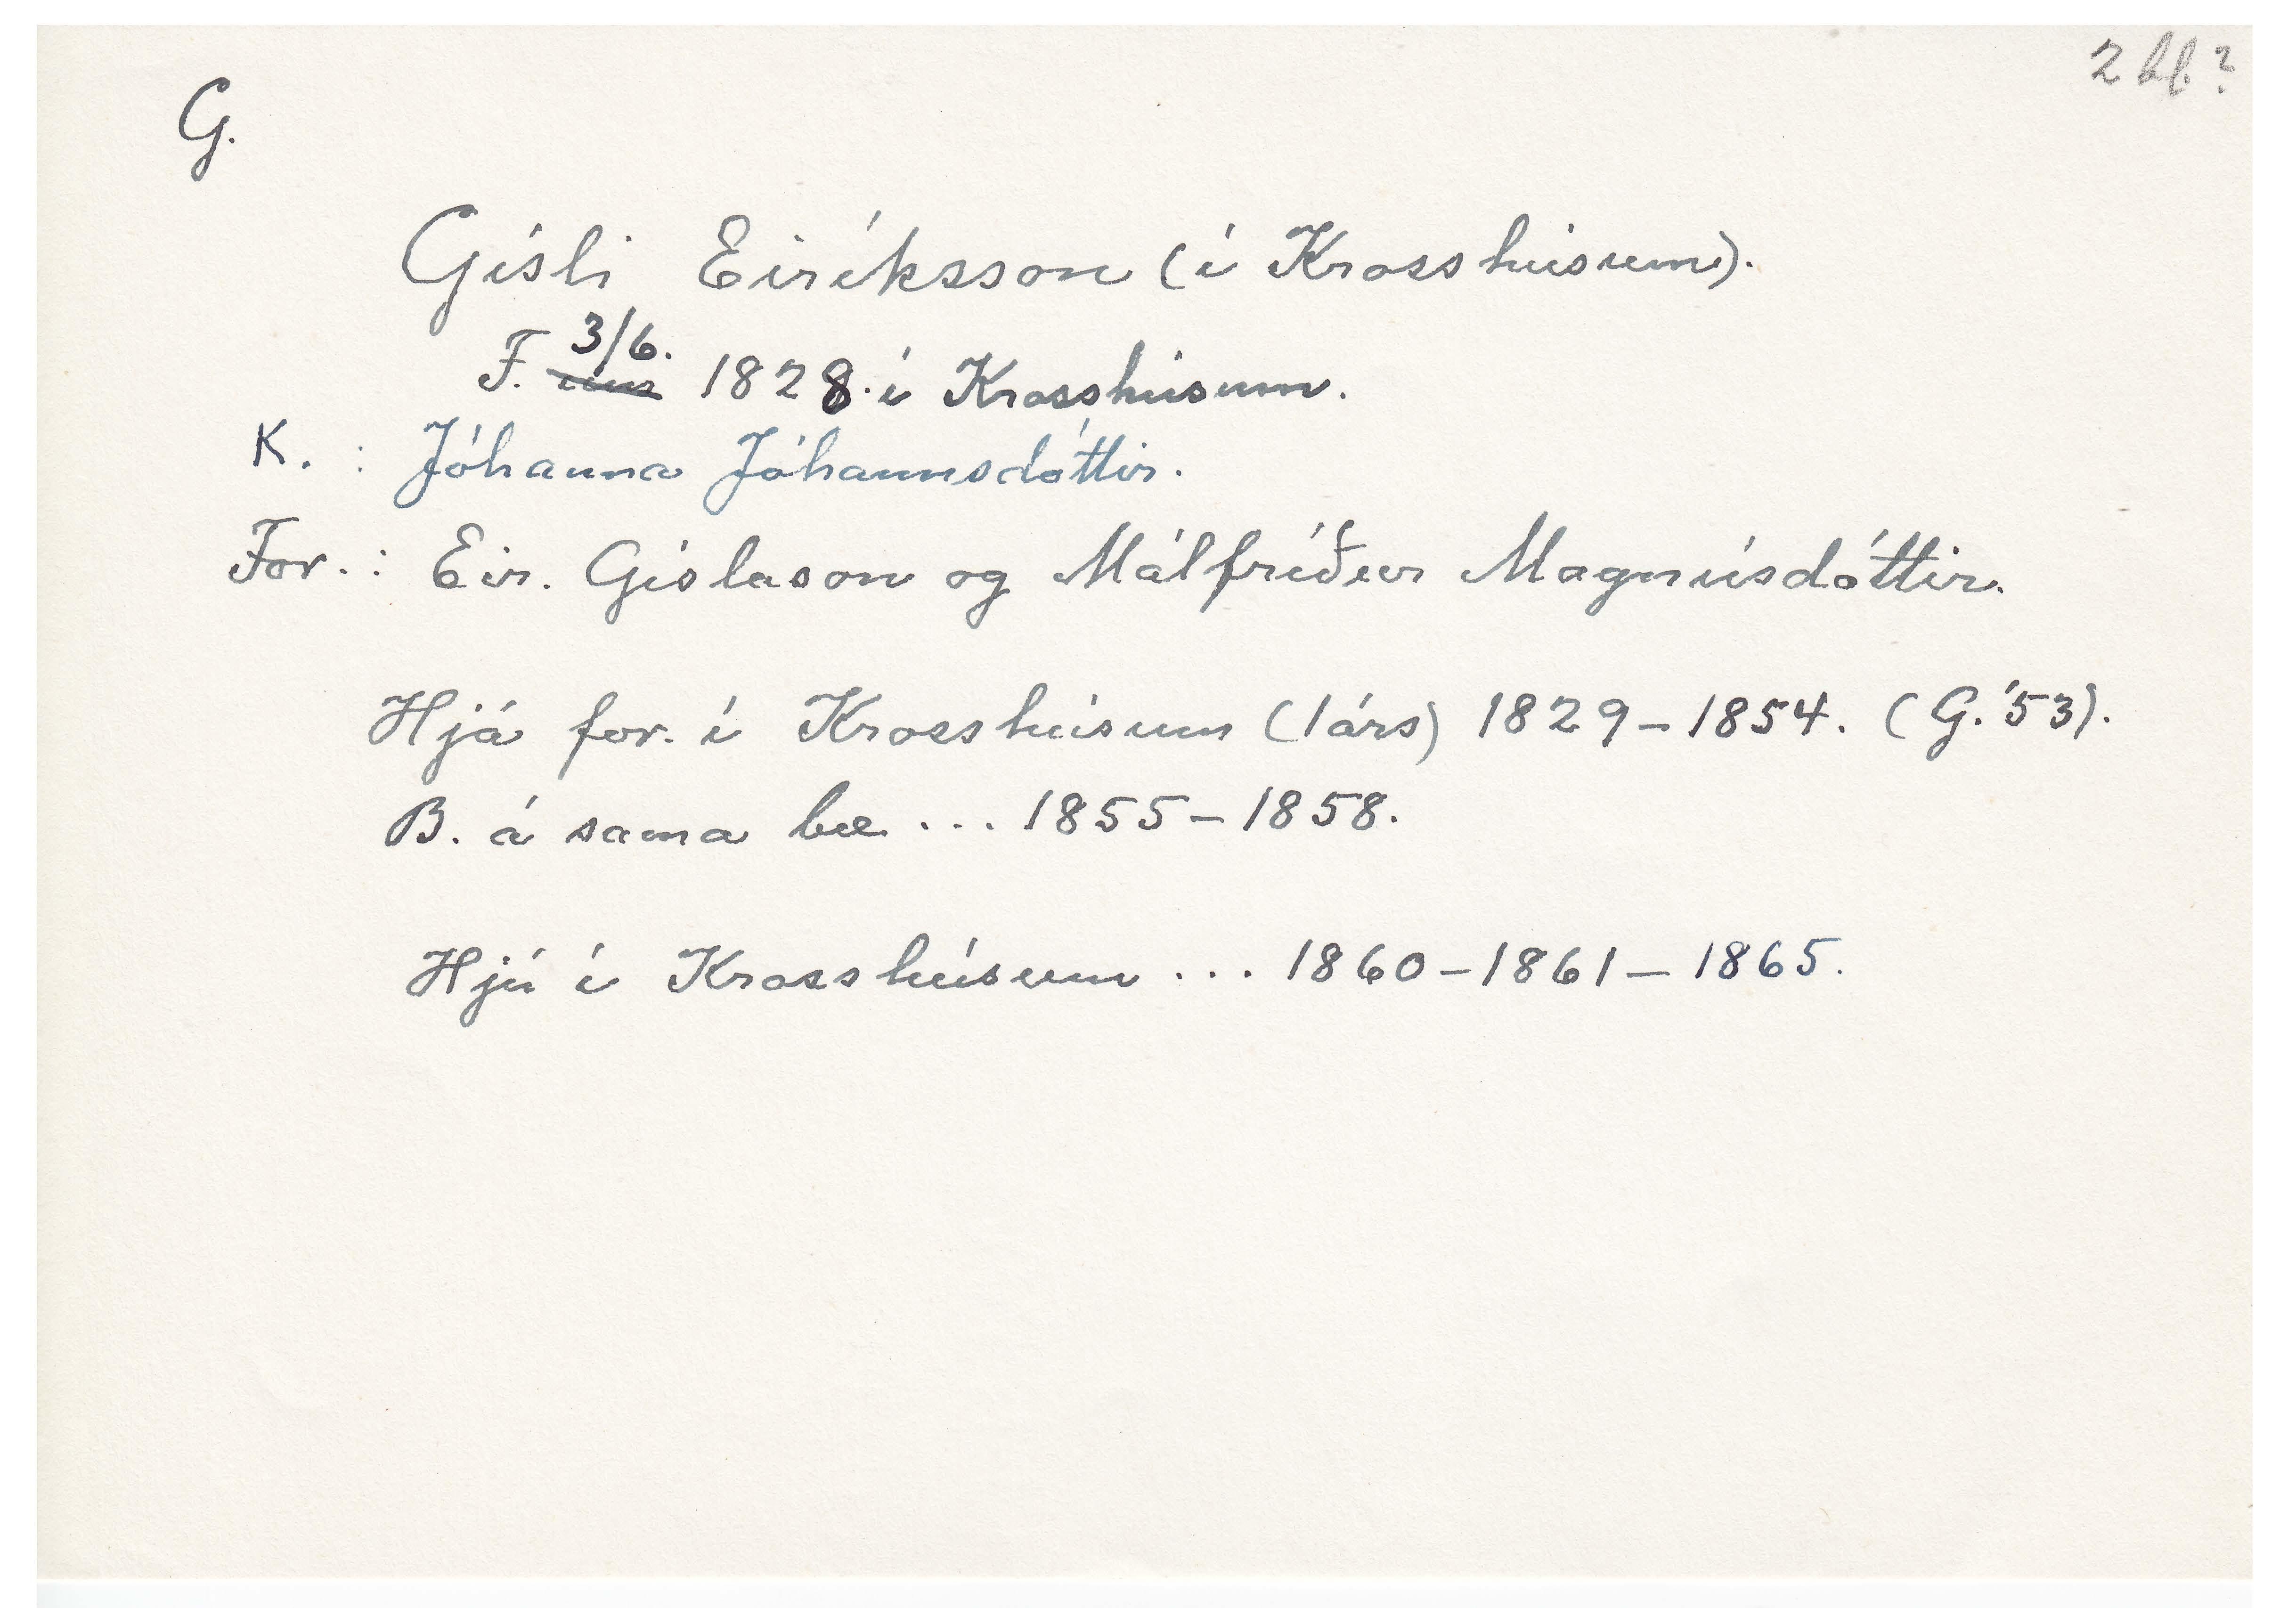 2 bl?
G.
Gísli Eiríksson (í Krosshúsum).
3/6.
F. um 1828. í Krosshúsum.
K. : Jóhanna Jóhannsdóttir.
For. : Eir. Gíslason og Málfríður Magnúsdóttir.
Hjá for. í Krosshúsum (1árs) 1829-1854. (G.'53).
B. á sama bæ ... 1855-1858.
Hjú í Krosshúsum ... 1860-1861-1865.